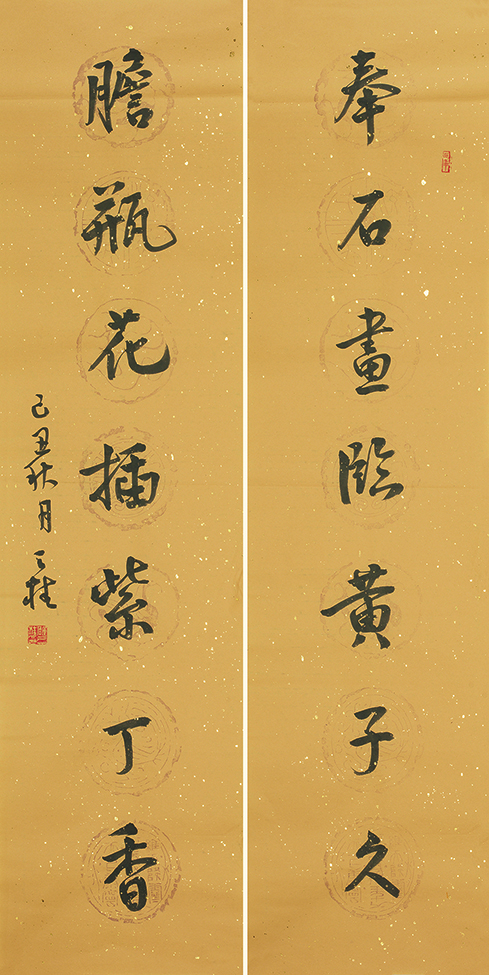 拳石畫臨黃子久
膽瓶花插紫丁香
己丑秋月